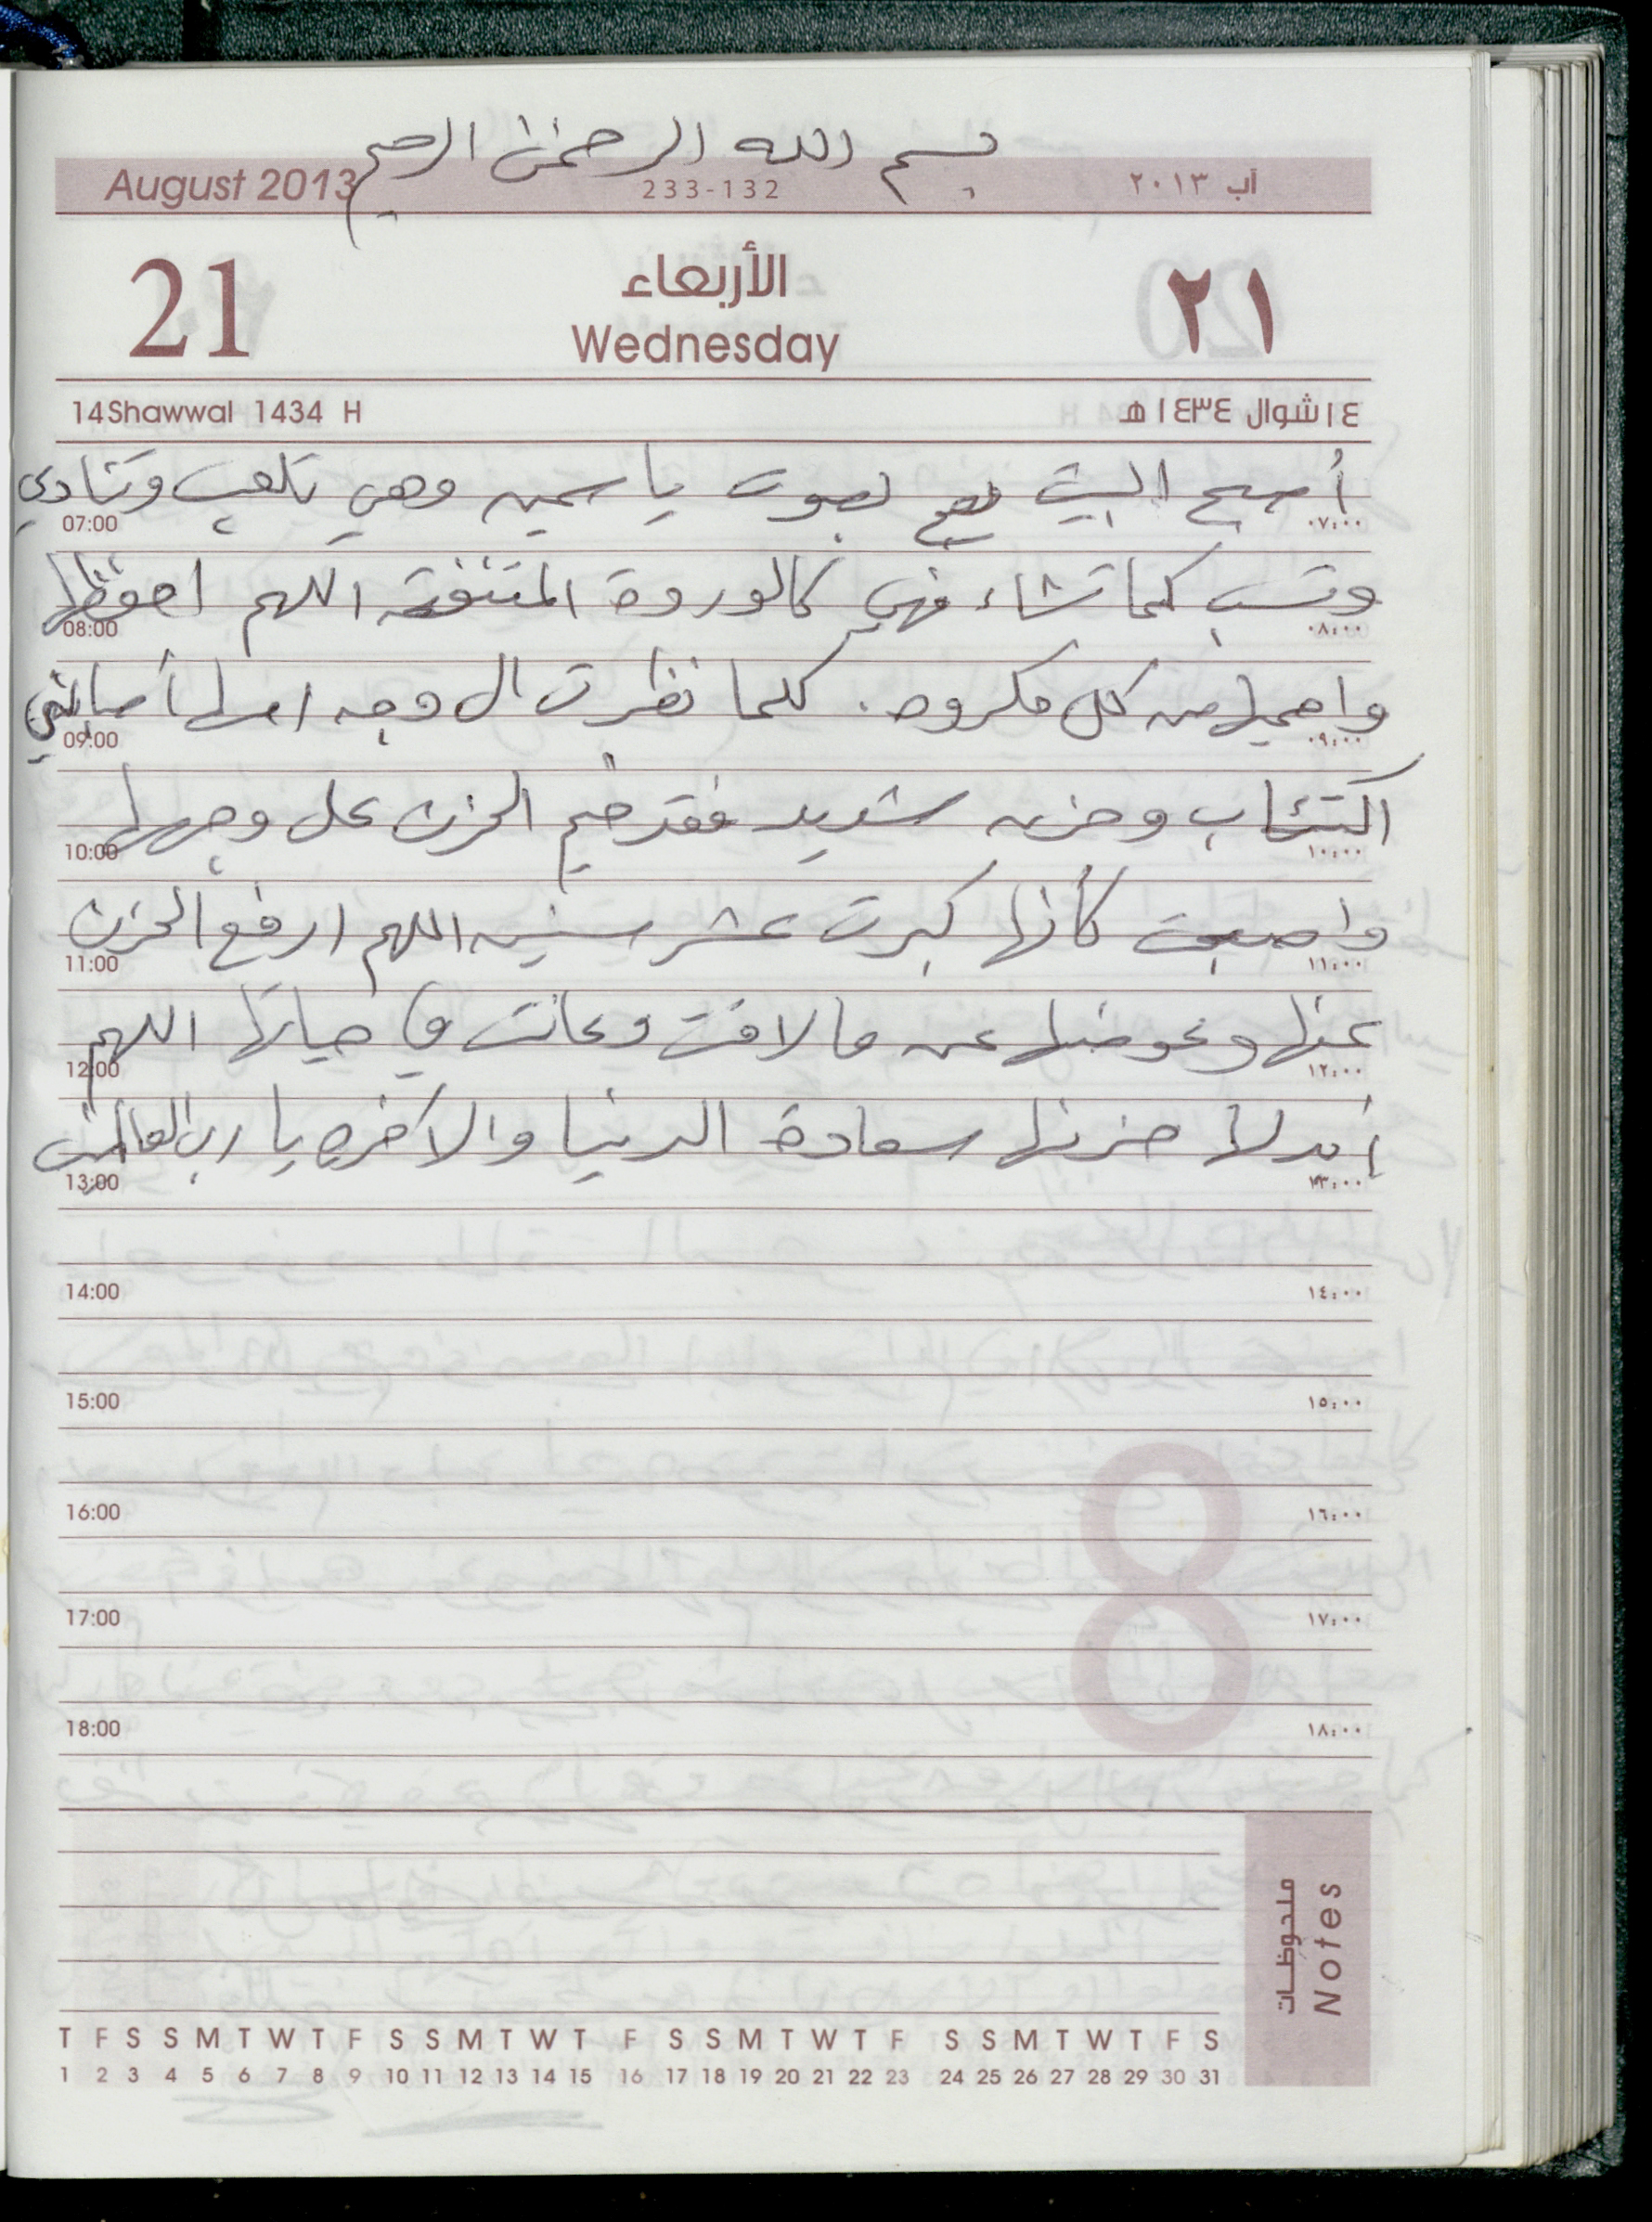 بسم الله الرحمن الرحيم
August 2013 233-132 آب ٢٠١٣
21 الأربعاء ٢١
Wednesday
14Shawwal 1434 H ١٤شوال ١٤٣٤ هـ
أصبح البيت يعج بصوت ياسمين وهي تلعب وتنادي
07:00 ٠٧:٠٠
كما تشاء فهي كالوردة المتفتحة اللهم احفظها
08:00 ٠٨:٠٠
واحميها من كل مكروه. كلما نظرت الى وجه امها أصابني
09:00 ٠٩:٠٠
اكتئاب وحزن شديد فقد خيم الحزن على وجهها
10:00 ١٠:٠٠
واصبحت كأنها كبرت عشر سنين اللهم ارفع الحزن
11:00 ١١:٠٠
عنها وعوضها عن ما لاقت وعانت في حياتها اللهم
12:00 ١٢:٠٠
أبدلها حزنها سعادة الدنيا والاخره يا رب العالمين
13:00 ١٣:٠٠
14:00 ١٤:٠٠
15:00 ١٥:٠٠
16:00 ١٦:٠٠
8
17:00 ١٧:٠٠
18:00 ١٨:٠٠
ملحوظات
Notes
T F S S M T W T F S S M T W T F S S M T W T F S S M T W T F S
1 2 3 4 5 6 7 8 9 10 11 12 13 14 15 16 17 18 19 20 21 22 23 24 25 26 27 28 29 30 31